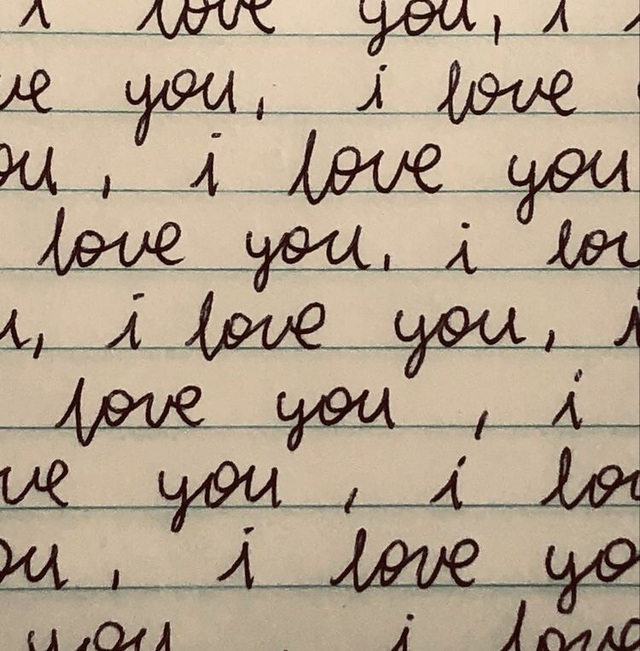 i love you, i
ve you, i love
ou, i love you
love you, i lov
u, i love you, i
love you, i
ve you, i lov
ou, i love yo
you, i love